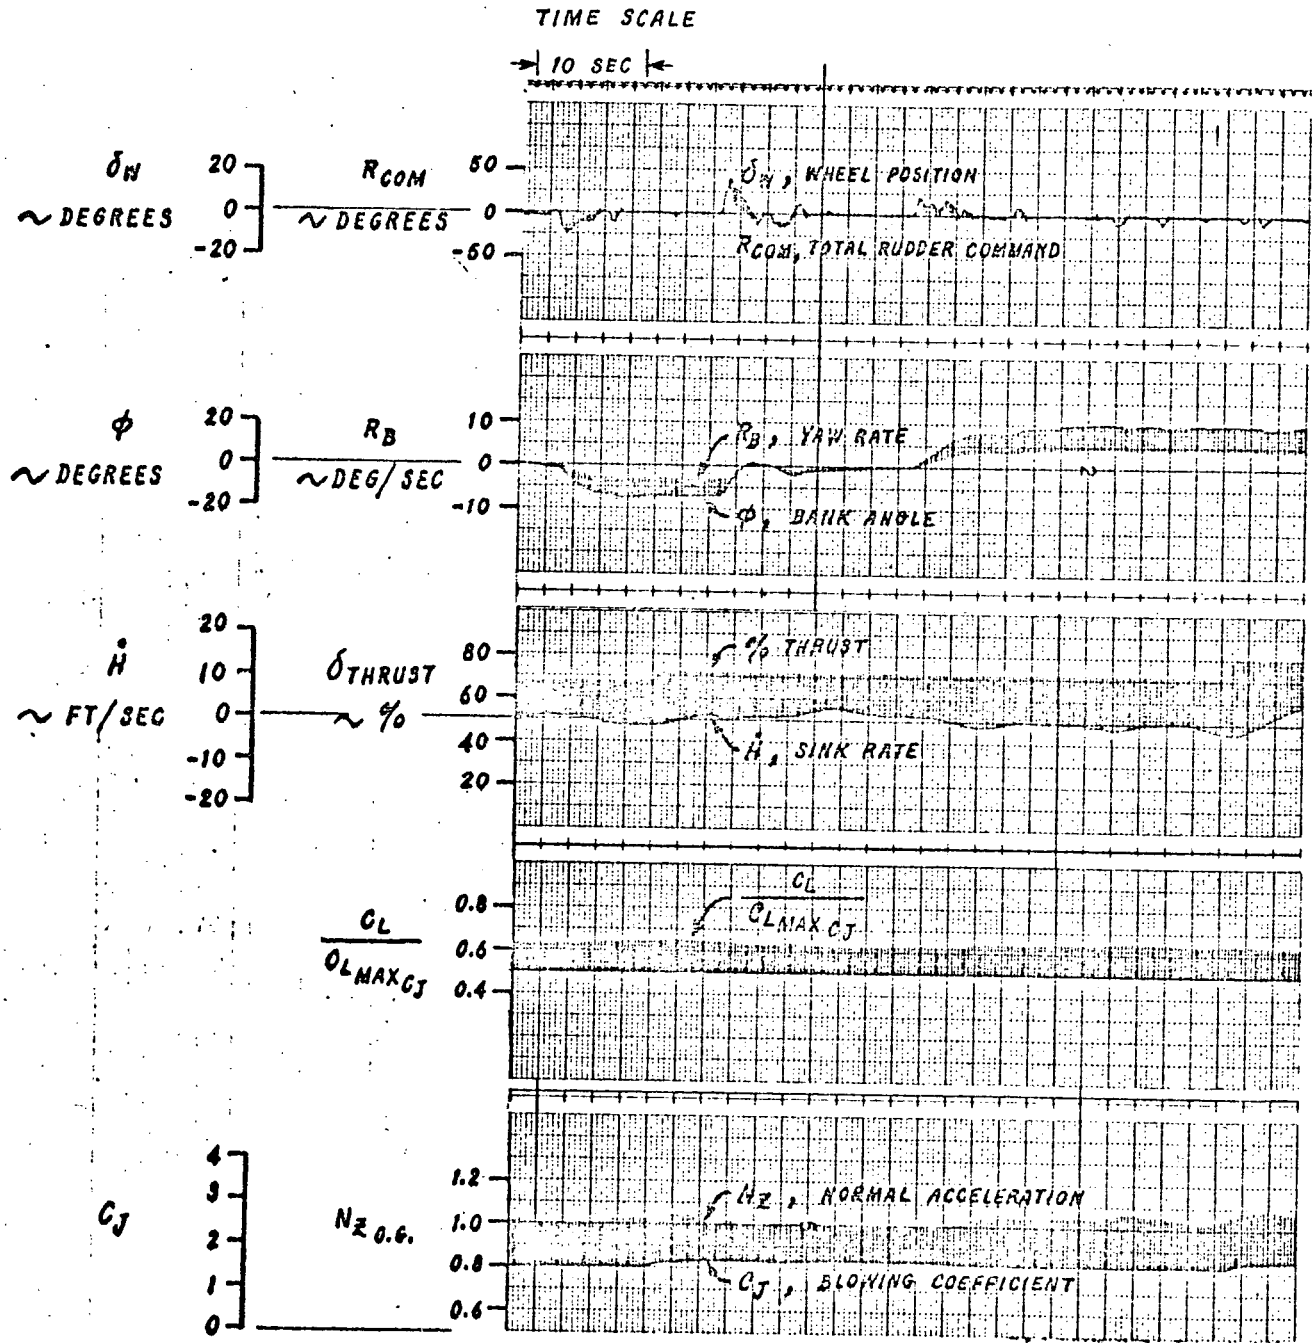 TIME SCALE
10 SEC
δW
~ DEGREES
20
0
-20
RCOM
~ DEGREES
50
0
-50
δW, WHEEL POSITION
RCOM, TOTAL RUDDER COMMAND
ϕ
~ DEGREES
20
0
-20
RB
~ DEG/SEC
10
0
-10
RB, YAW RATE
ϕ, BANK ANGLE
2
Ḣ
~ FT/SEC
20
10
0
-10
-20
δTHRUST
~ %
80
60
40
20
% THRUST
Ḣ, SINK RATE
CL
CLMAXCJ
0.8
0.6
0.4
CL
CLMAXCJ
CJ
4
3
2
1
0
NZ O.G.
1.2
1.0
0.8
0.6
NZ, NORMAL ACCELERATION
CJ, BLOWING COEFFICIENT